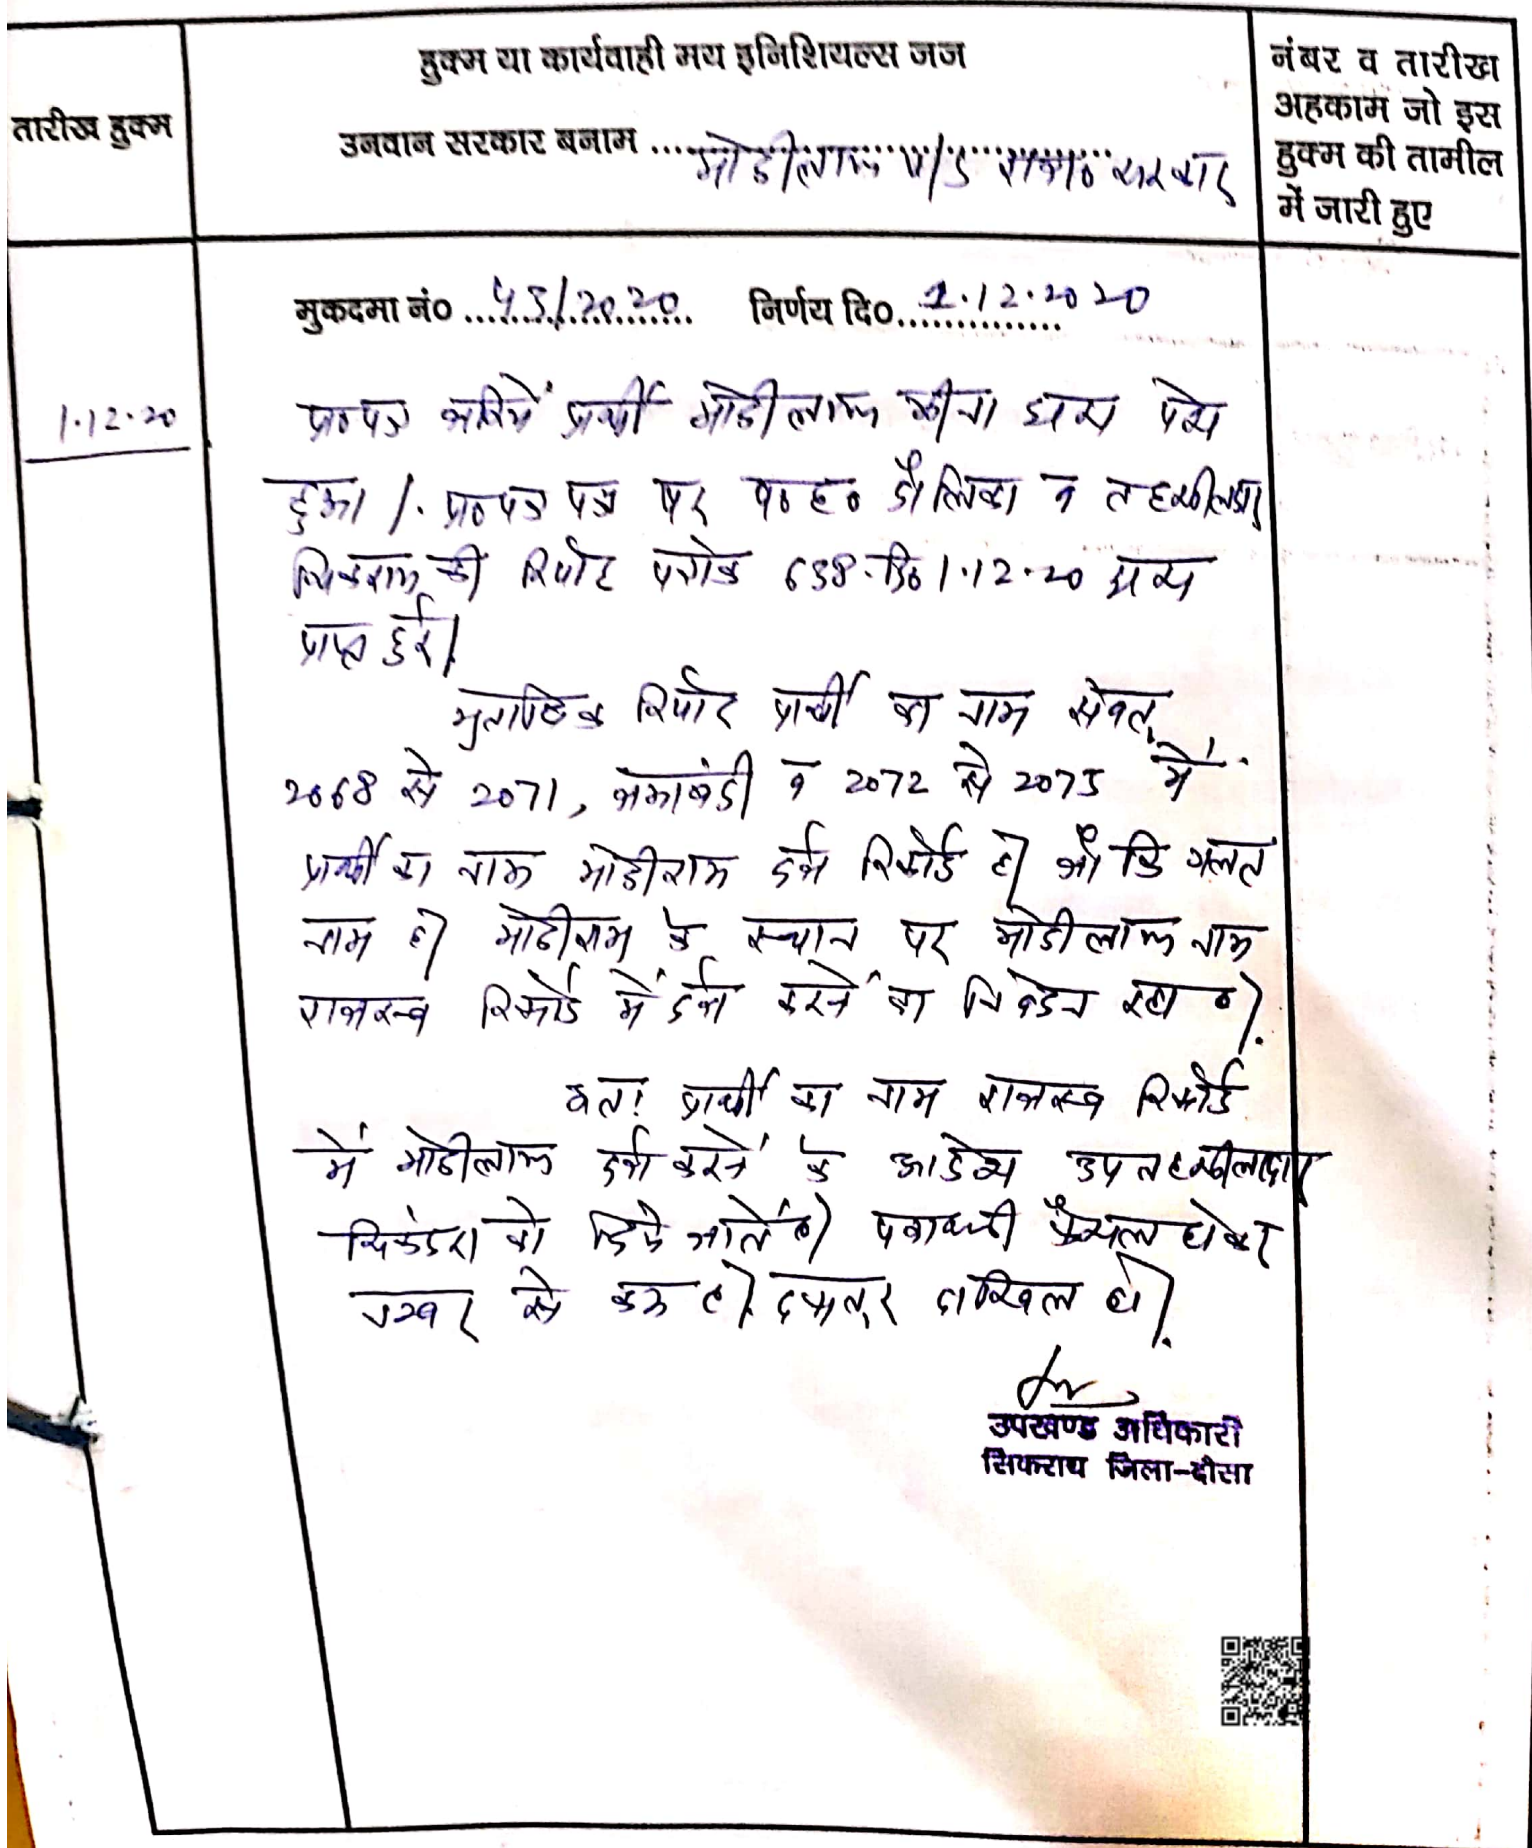 तारीख हुक्म
हुक्म या कार्यवाही मय इनिशियल्स जज
उनवान सरकार बनाम ........ मोडीलाल v/s राज० सरकार
नंबर व तारीख
अहकाम जो इस
हुक्म की तामील
में जारी हुए
मुकदमा नं० 45/2020 निर्णय दि० 1.12.2020
1.12.20
प्रा०पत्र प्रार्थी मोडीलाल मीना पेश
हुआ। प्रा०पत्र पर प०ह० व तहसीलदार
की रिपोर्ट 638 दि० 1.12.20
प्राप्त हुई।
मुताबिक रिपोर्ट प्रार्थी का नाम संवत्
2068 से 2071, जमाबंदी व 2072 से 2075 में
प्रार्थी का नाम मोडीराम दर्ज रिकॉर्ड है। जो कि गलत
नाम है। मोडीराम के स्थान पर मोडीलाल नाम
राजस्व रिकॉर्ड में दर्ज करने का निवेदन रहा है।
अतः प्रार्थी का नाम राजस्व रिकॉर्ड
में मोडीलाल दर्ज करने के आदेश उप तहसीलदार
सिकंदरा को दिये जाते है। पत्रावली फैसल होकर
नम्बर से कम हो। दफ्तर दाखिल हो।
उपखण्ड अधिकारी
सिकराय जिला-दौसा